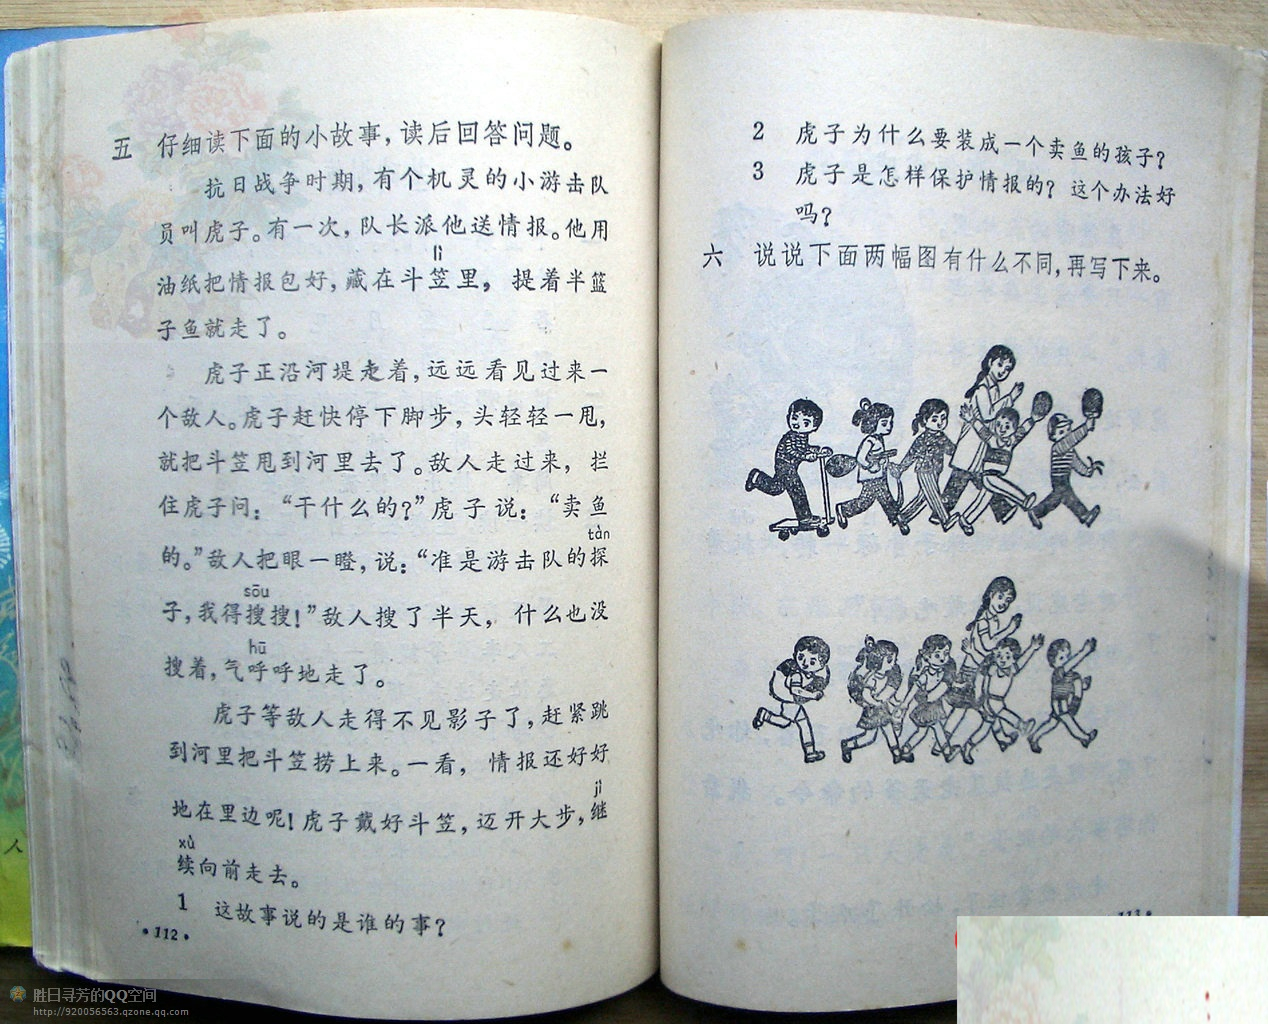 五 仔细读下面的小故事，读后回答问题。
抗日战争时期，有个机灵的小游击队
员叫虎子。有一次，队长派他送情报。他用
lì
油纸把情报包好，藏在斗笠里，提着半篮
子鱼就走了。
虎子正沿河堤走着，远远看见过来一
个敌人。虎子赶快停下脚步，头轻轻一甩，
就把斗笠甩到河里去了。敌人走过来，拦
住虎子问：“干什么的？”虎子说：“卖鱼
tàn
的。”敌人把眼一瞪，说：“准是游击队的探
sōu
子，我得搜搜！”敌人搜了半天，什么也没
hū
搜着，气呼呼地走了。
虎子等敌人走得不见影子了，赶紧跳
到河里把斗笠捞上来。一看，情报还好好
jì
地在里边呢！虎子戴好斗笠，迈开大步，继
xù
续向前走去。
1 这故事说的是谁的事？
·112·
2 虎子为什么要装成一个卖鱼的孩子？
3 虎子是怎样保护情报的？这个办法好
吗？
六 说说下面两幅图有什么不同，再写下来。
人
胜日寻芳的QQ空间
http://920056563.qzone.qq.com